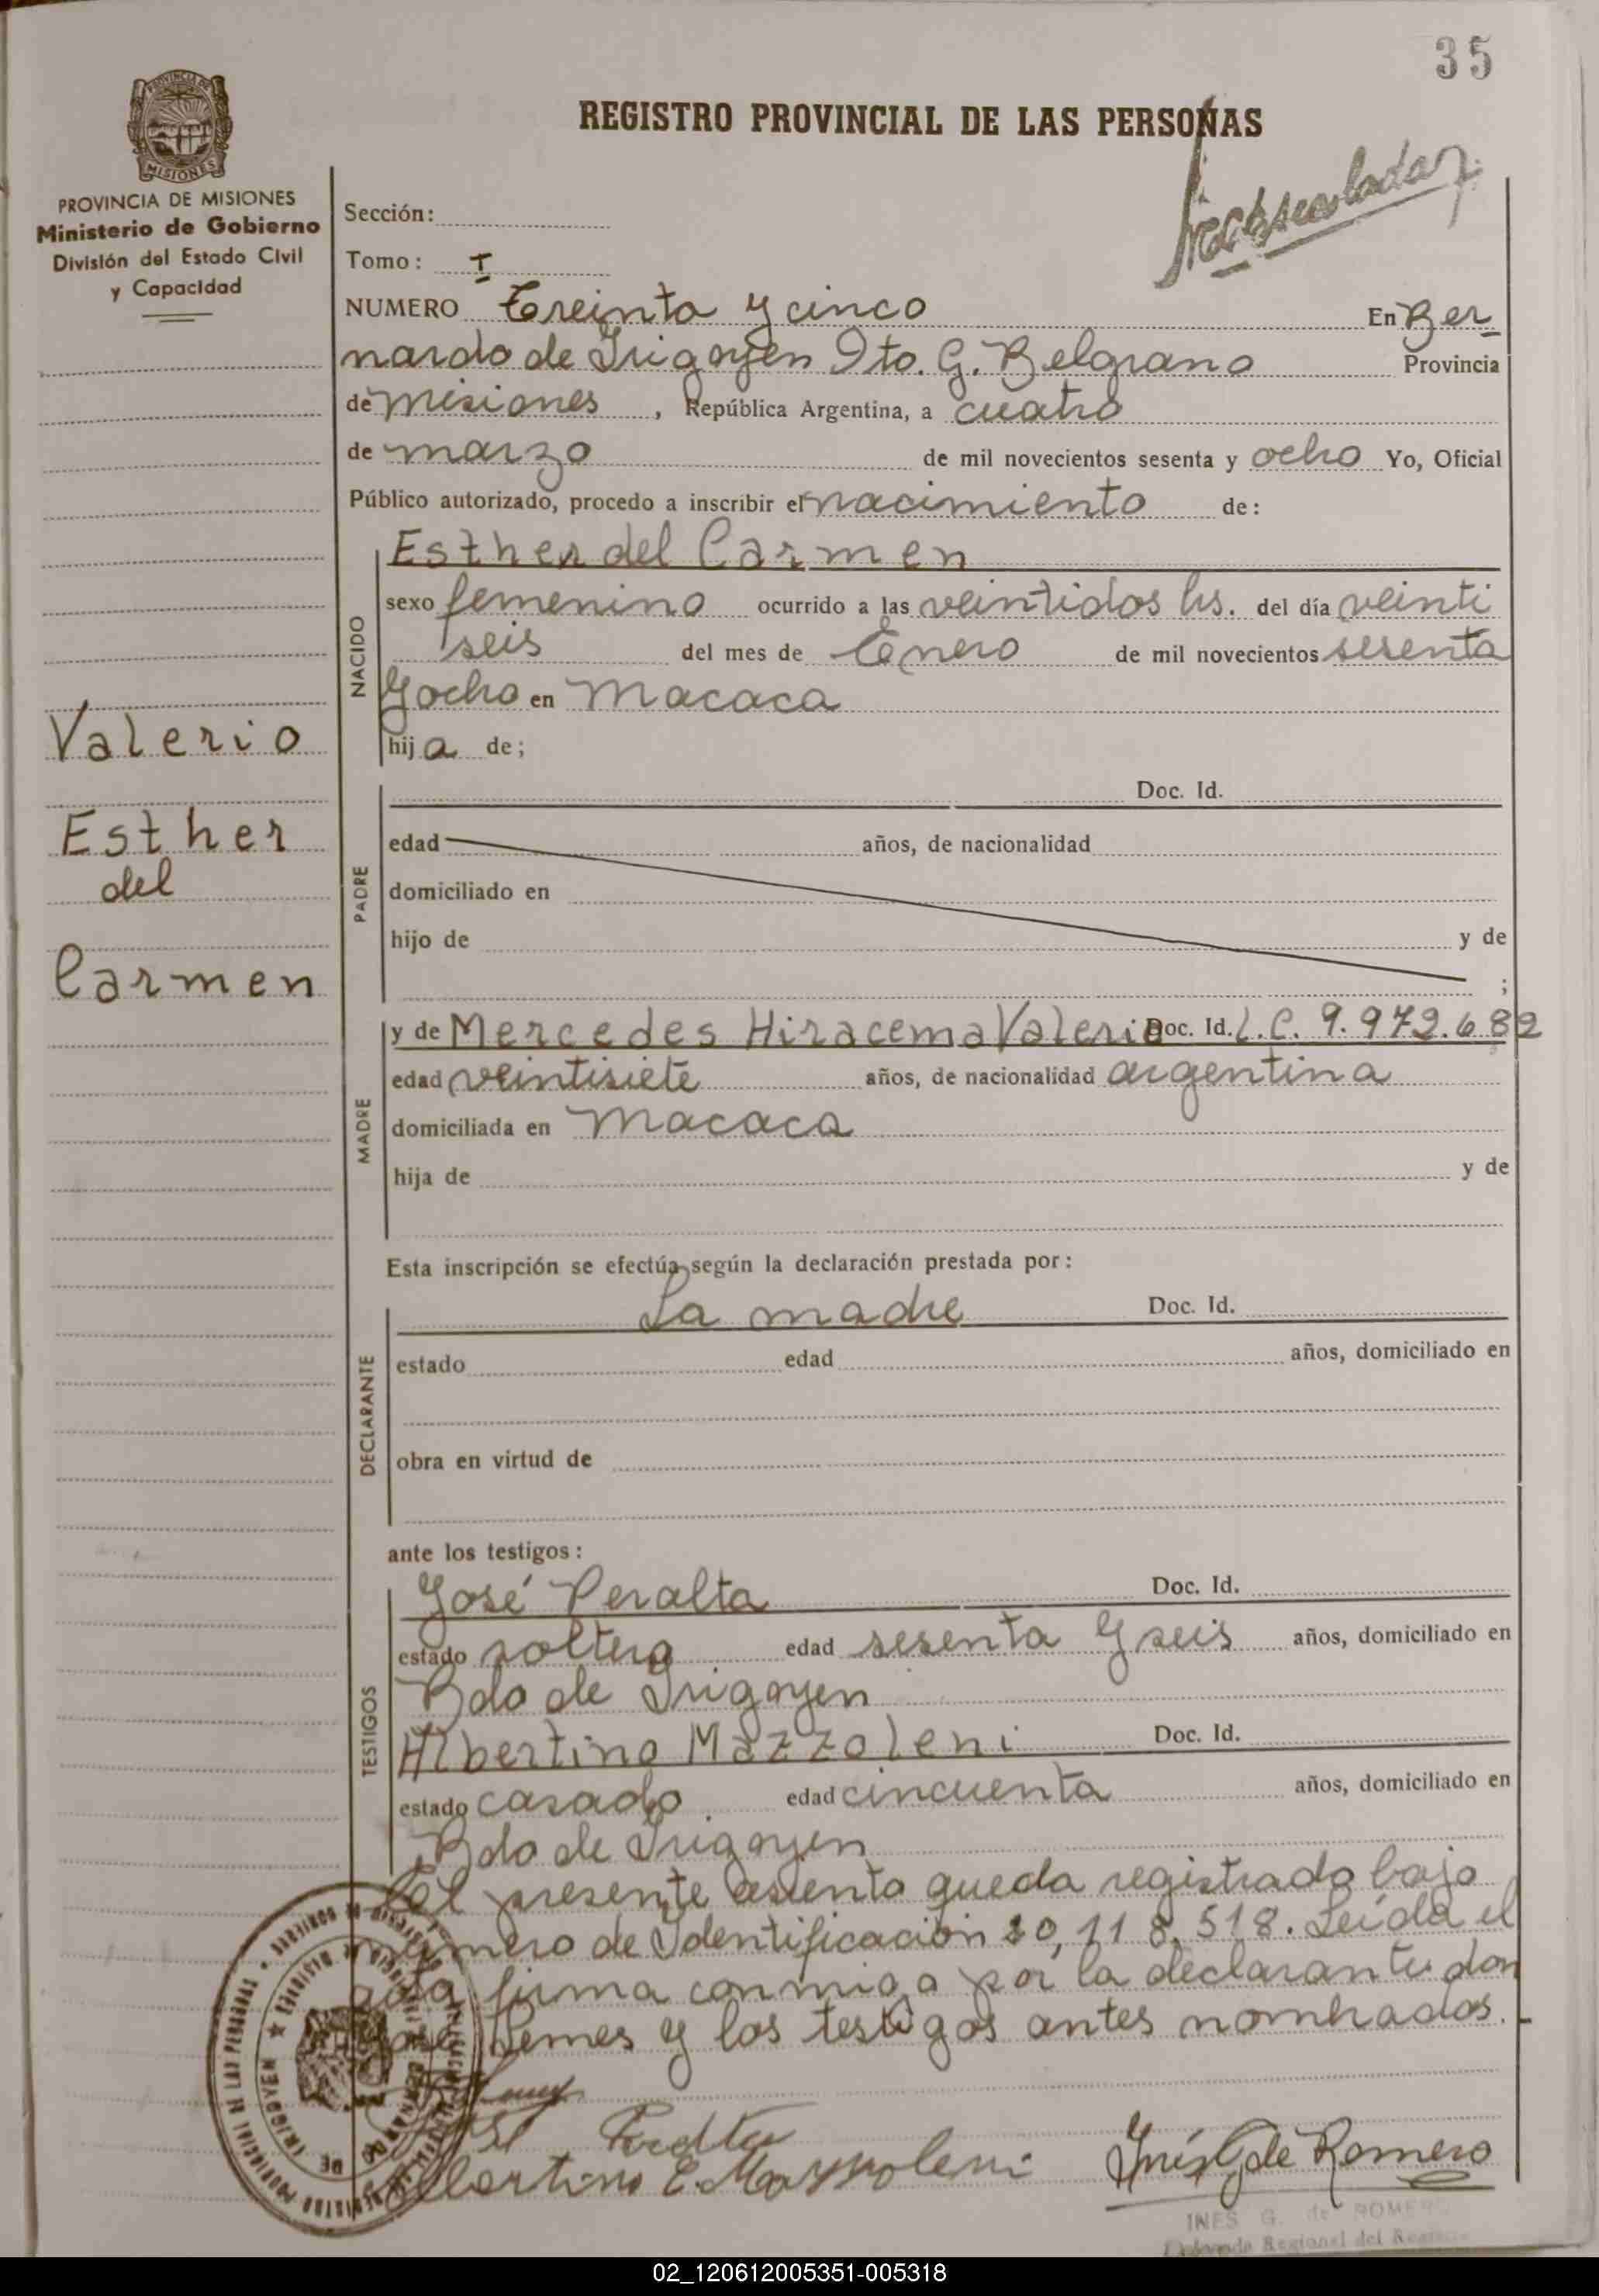 35
REGISTRO PROVINCIAL DE LAS PERSONAS
PROVINCIA DE MISIONES
Ministerio de Gobierno
División del Estado Civil
y Capacidad
MISIONES
Sección:
Tomo: I
NUMERO Treinta y cinco En Ber
nardo de Irigoyen Dto. G. Belgrano Provincia
de misiones, República Argentina, a cuatro
de marzo de mil novecientos sesenta y ocho Yo, Oficial
Público autorizado, procedo a inscribir el nacimiento de:
NACIDO
Esther del Carmen
sexo femenino ocurrido a las veintidos hs. del día veinti
seis del mes de Enero de mil novecientos sesenta
y ocho en Macaca
hija de;
Valerio
Esther
del
Carmen
PADRE
Doc. Id.
edad años, de nacionalidad
domiciliado en
hijo de y de
;
MADRE
y de Mercedes Hiracema Valerio Doc. Id. L.C. 9.972.682
edad veintisiete años, de nacionalidad argentina
domiciliada en Macaca
hija de y de
Esta inscripción se efectúa según la declaración prestada por:
DECLARANTE
La madre Doc. Id.
estado edad años, domiciliado en
obra en virtud de
ante los testigos:
TESTIGOS
José Peralta Doc. Id.
estado soltero edad sesenta y seis años, domiciliado en
Bdo de Irigoyen
Albertino Mazzoleni Doc. Id.
estado casado edad cincuenta años, domiciliado en
Bdo de Irigoyen
El presente asiento queda registrado bajo
número de Identificación 20,118,518. Leída el
acta firma conmigo por la declarante don
Lemes y los testigos antes nombrados.
Albertino E. Mazzoleni
Inés G de Romero
INES G. de ROMERO
Regional del
02_120612005351-005318